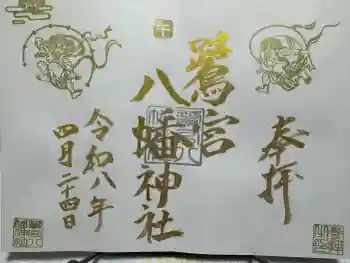 奉拝
午
鷺宮
八幡神社
令和八年
四月二十四日